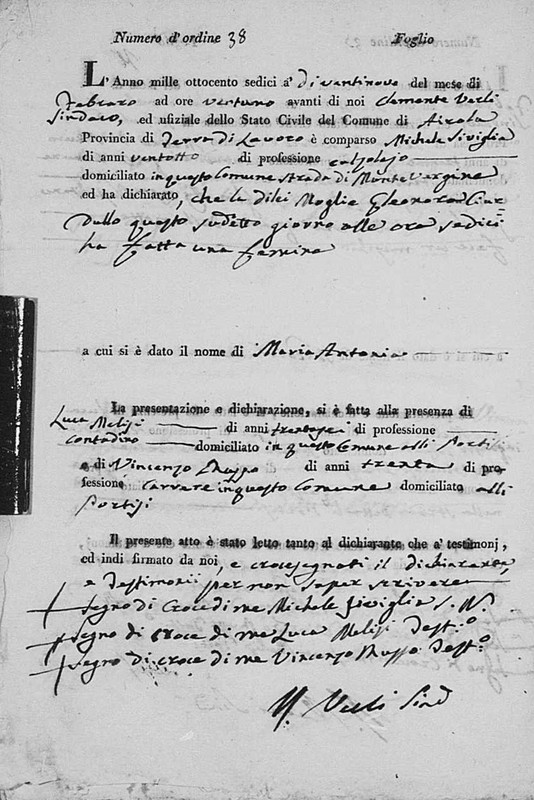 Numero d'ordine 38 Foglio
L'Anno mille ottocento sedici a' di ventinove del mese di
Febraro ad ore ventuno avanti di noi Clemente Verli
Sindaco, ed ufiziale dello Stato Civile del Comune di Airola
Provincia di Terra di Lavoro è comparso Michele Siviglia
di anni ventotto di professione calzolajo
domiciliato in questo Comune strada di Monte Vergine
ed ha dichiarato, che la di lei Moglie Eleonora Ciar
dullo questo sudetto giorno alle ore sedici
ha fatta una femina
a cui si è dato il nome di Maria Antonia
La presentazione e dichiarazione, si è fatta alla presenza di
Luca Melisi di anni trentasei di professione
contadino domiciliato in questo Comune alli Portisi
e di Vincenzo Russo di anni trenta di pro-
fessione in questo Comune domiciliato alli
Portisi
Il presente atto è stato letto tanto al dichiarante che a' testimonj,
ed indi firmato da noi, e crocesegnati il dichiarante,
e Testimonii per non saper scrivere
Segno di Croce di me Michele Siviglia
Segno di croce di me Luca Melisi Test.o
Segno di croce di me Vincenzo Russo Test.o
Verli Sind